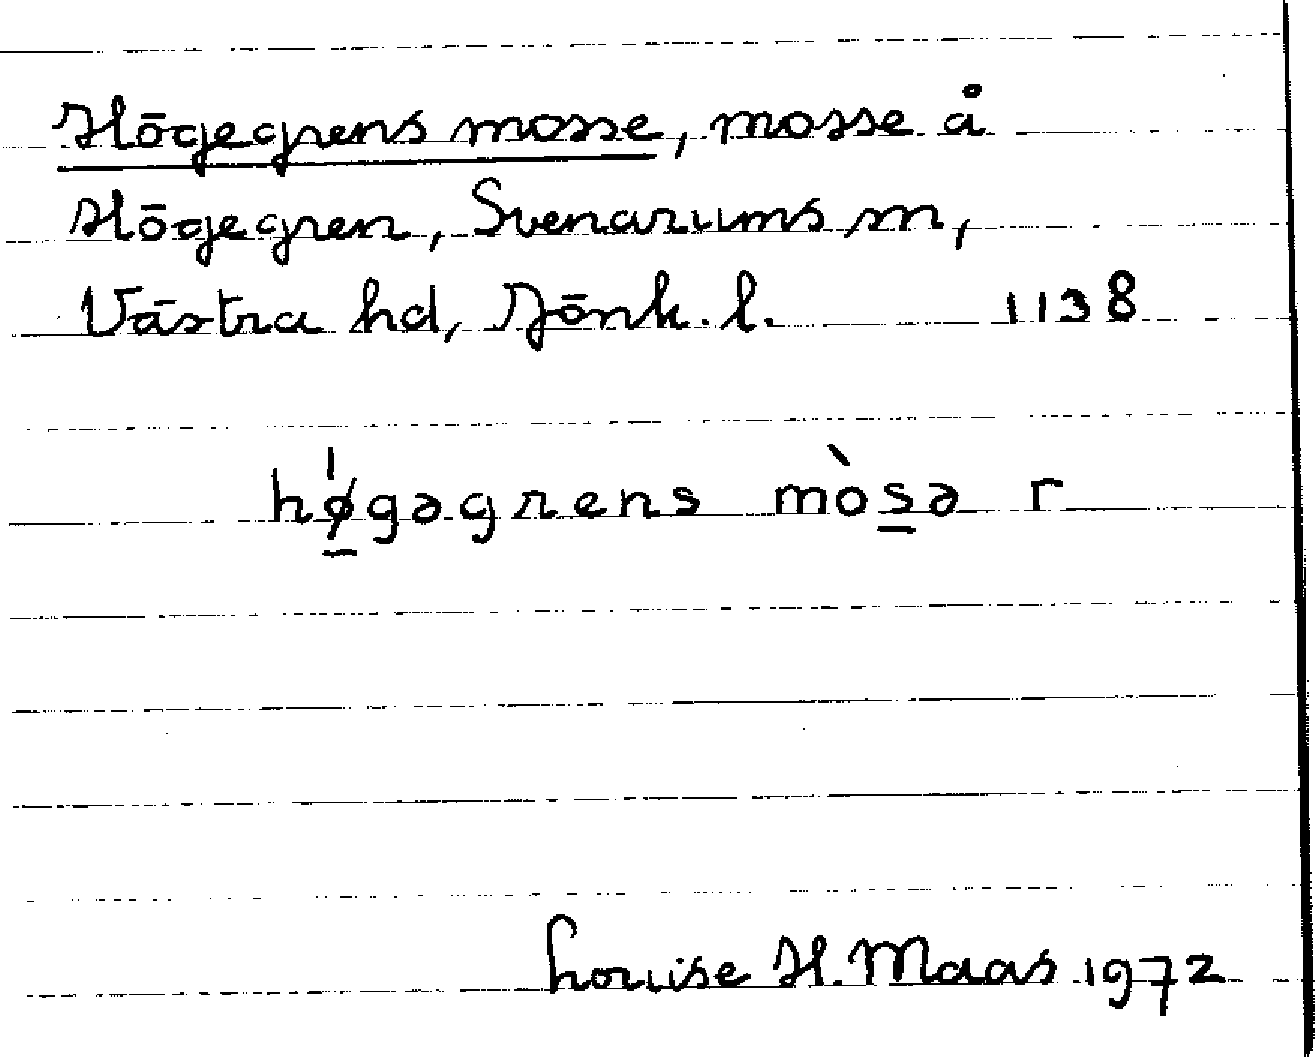 Högegrens mosse, mosse å
Högegren, Svenarums sn,
Västra hd, Jönk. l. 1138
hǿ̲gəgrens mòs̲ə r
Louise H. Maas 1972